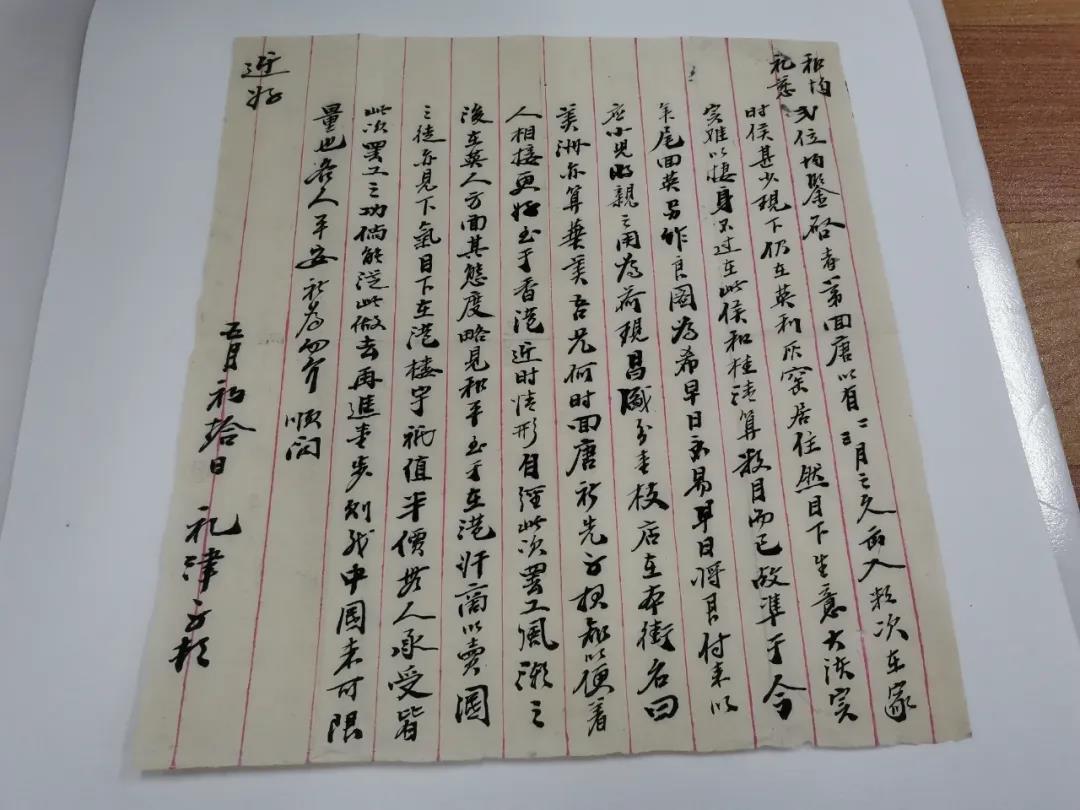 和均
礼慈
弍位均鉴啓者弟回唐以有二三月之久而入数次在家
时侯甚少现下仍在英利灰窑居住然目下生意大淡实
实难以棲身不过在此侯和桂清算数目而已故準于今
年尾回英另作良图为希早日交易早日将艮付来以
应小児成親之用為荷现昌盛分枝店在本街名曰
美洲亦算華美吾兄何时回唐祈先示知以便着
人相接更好至于香港近时情形自經此次罢工風潮之
後在英人方面其態度略見和平至于在港奸商以賣國
之徒亦見下氣目下在港楼宇祇值半價無人承受皆
此次罢工之功倘能從此做去再進壹步則我中國未可限
量也客人平安祈為勿介 順问
近好
五月初拾日 礼津